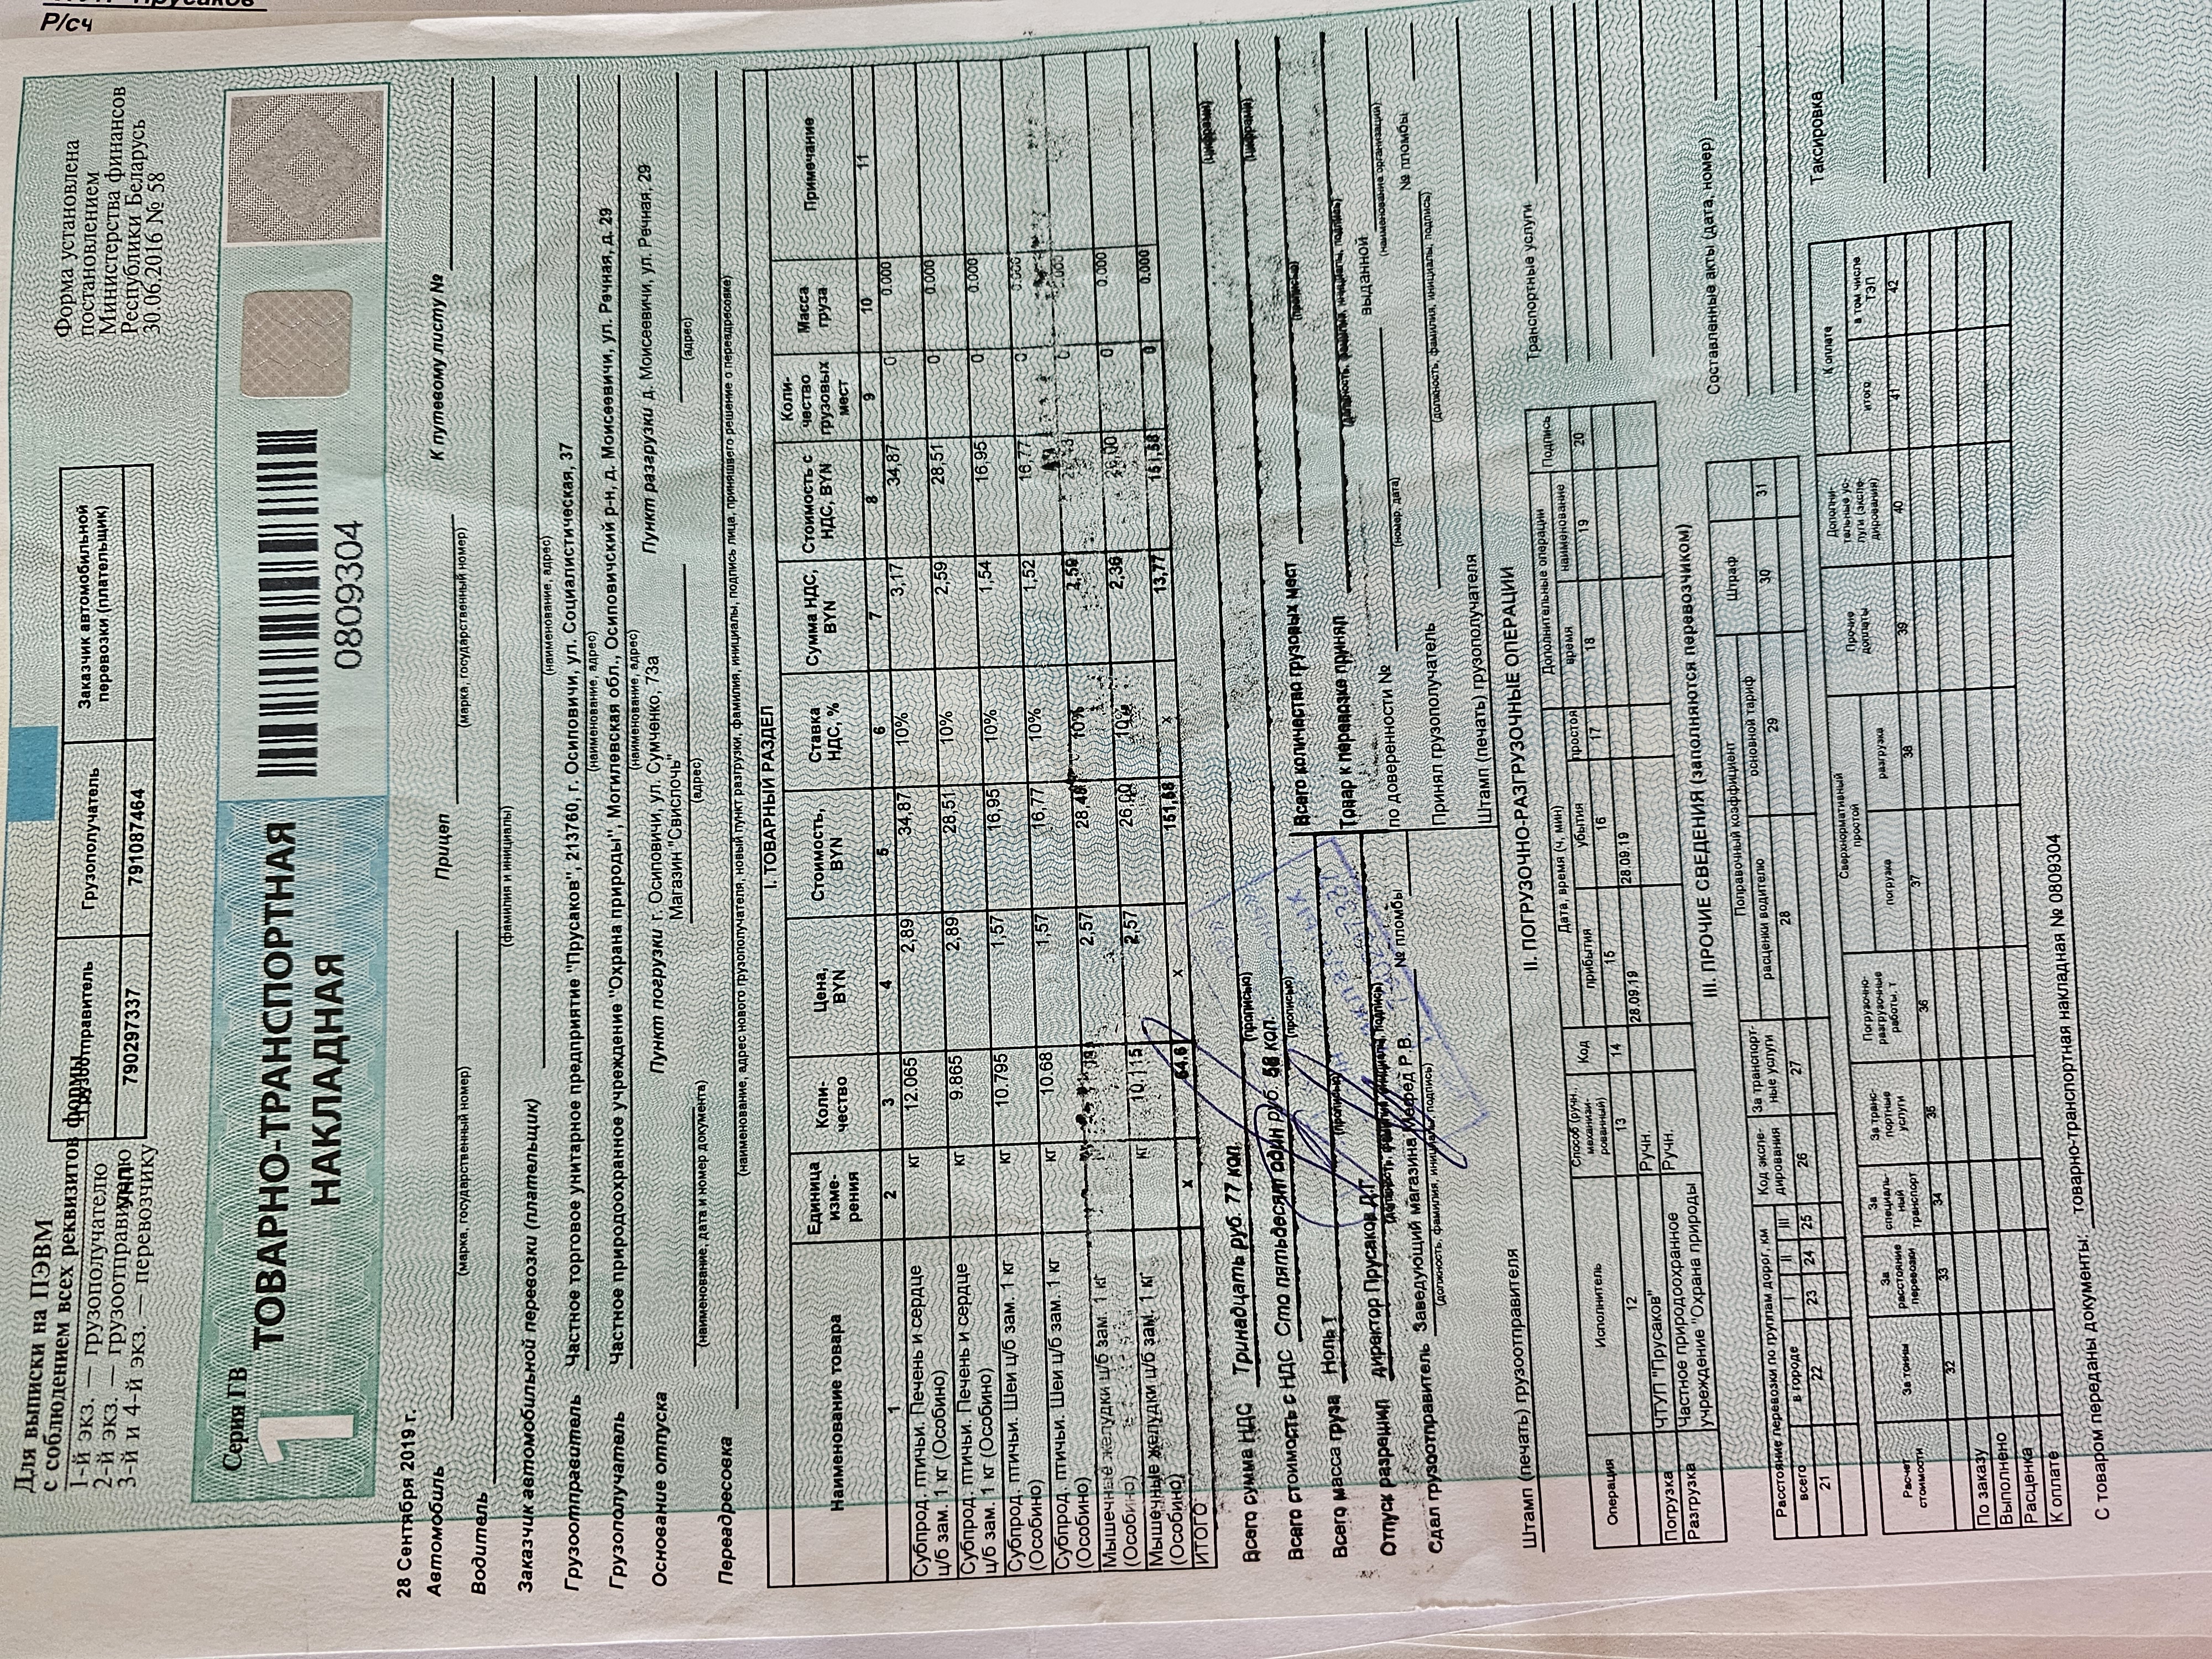 Р/сч
Для выписки на ПЭВМ
с соблюдением всех реквизитов формы
1-й экз. — грузополучателю
2-й экз. — грузоотправителю
3-й и 4-й экз. — перевозчику
Грузоотправитель
Грузополучатель
Заказчик автомобильной перевозки (плательщик)
790297337
791087464
Форма установлена
постановлением
Министерства финансов
Республики Беларусь
30.06.2016 № 58
Серия ГВ
1
ТОВАРНО-ТРАНСПОРТНАЯ
НАКЛАДНАЯ
0809304
28 Сентября 2019 г.
Автомобиль
(марка, государственный номер)
Прицеп
(марка, государственный номер)
К путевому листу №
Водитель
(фамилия и инициалы)
Заказчик автомобильной перевозки (плательщик)
(наименование, адрес)
Грузоотправитель Частное торговое унитарное предприятие "Прусаков", 213760, г. Осиповичи, ул. Социалистическая, 37
(наименование, адрес)
Грузополучатель Частное природоохранное учреждение "Охрана природы", Могилевская обл., Осиповичский р-н, д. Моисеевичи, ул. Речная, д. 29
(наименование, адрес)
Основание отпуска
(наименование, дата и номер документа)
Пункт погрузки г. Осиповичи, ул. Сумченко, 73а
Магазин "Свислочь"
(адрес)
Пункт разгрузки д. Моисеевичи, ул. Речная, 29
(адрес)
Переадресовка
(наименование, адрес нового грузополучателя, новый пункт разгрузки, фамилия, инициалы, подпись лица, принявшего решение о переадресовке)
I. ТОВАРНЫЙ РАЗДЕЛ
Наименование товара | Единица изме-рения | Коли-чество | Цена, BYN | Стоимость, BYN | Ставка НДС, % | Сумма НДС, BYN | Стоимость с НДС, BYN | Коли-чество грузовых мест | Масса груза | Примечание
1 2 3 4 5 6 7 8 9 10 11
Субпрод. птичьи. Печень и сердце ц/б зам. 1 кг (Особино) кг 12.065 2,89 34,87 10% 3,17 34,87 0 0.000
Субпрод. птичьи. Печень и сердце ц/б зам. 1 кг (Особино) кг 9.865 2,89 28,51 10% 2,59 28,51 0 0.000
Субпрод. птичьи. Шеи ц/б зам. 1 кг (Особино) кг 10.795 1,57 16,95 10% 1,54 16,95 0 0.000
Субпрод. птичьи. Шеи ц/б зам. 1 кг (Особино) кг 10.68 1,57 16,77 10% 1,52 16,77 0 0.000
Мышечные желудки ц/б зам. 1 кг (Особино) 2,57 28,48 10% 2,59 0 0.000
Мышечные желудки ц/б зам. 1 кг (Особино) кг 10.115 2,57 26,00 10% 2,36 26,00 0 0.000
ИТОГО x 64.6 x 151,58 x 13,77 151,58 0 0.000
Всего сумма НДС Тринадцать руб. 77 коп.
(прописью)
(цифрами)
Всего стоимость с НДС Сто пятьдесят один руб. 58 коп.
(прописью)
(цифрами)
Всего масса груза Ноль т
(прописью)
Всего количество грузовых мест
(прописью)
Отпуск разрешил директор Прусаков Д.Г.
Товар к перевозке принял
(должность, фамилия, инициалы, подпись)
Сдал грузоотправитель Заведующий магазина Мефед Р.В. № пломбы
(должность, фамилия, инициалы, подпись)
по доверенности №
(номер, дата)
выданной
(наименование организации)
Принял грузополучатель
(должность, фамилия, инициалы, подпись)
№ пломбы
Штамп (печать) грузоотправителя
Штамп (печать) грузополучателя
II. ПОГРУЗОЧНО-РАЗГРУЗОЧНЫЕ ОПЕРАЦИИ
Операция | Исполнитель | Способ (ручн., механизи-рованный) | Код | Дата, время (ч, мин) | Дополнительные операции | Подпись
прибытия | убытия | простоя | время | наименование
12 13 14 15 16 17 18 19 20
Погрузка ЧТУП "Прусаков" Ручн. 28.09.19 28.09.19
Разгрузка Частное природоохранное учреждение "Охрана природы Ручн.
Транспортные услуги
III. ПРОЧИЕ СВЕДЕНИЯ (заполняются перевозчиком)
Расстояние перевозки по группам дорог, км | Код экспе-дирования | За транспорт-ные услуги | Поправочный коэффициент | Штраф
всего | в городе | I | II | III | расценки водителю | основной тариф
21 22 23 24 25 26 27 28 29 30 31
Составленные акты (дата, номер)
Расчет стоимости | За тонны | За расстояние перевозки | За специаль-ный транспорт | За транс-портные услуги | Погрузочно-разгрузочные работы, т | Сверхнормативный простой | Прочие доплаты | Дополни-тельные ус-луги (экспе-дирования) | К оплате
погрузка | разгрузка | итого | в том числе ТЭП
32 33 34 35 36 37 38 39 40 41 42
По заказу
Выполнено
Расценка
К оплате
Таксировка
С товаром переданы документы: товарно-транспортная накладная № 0809304